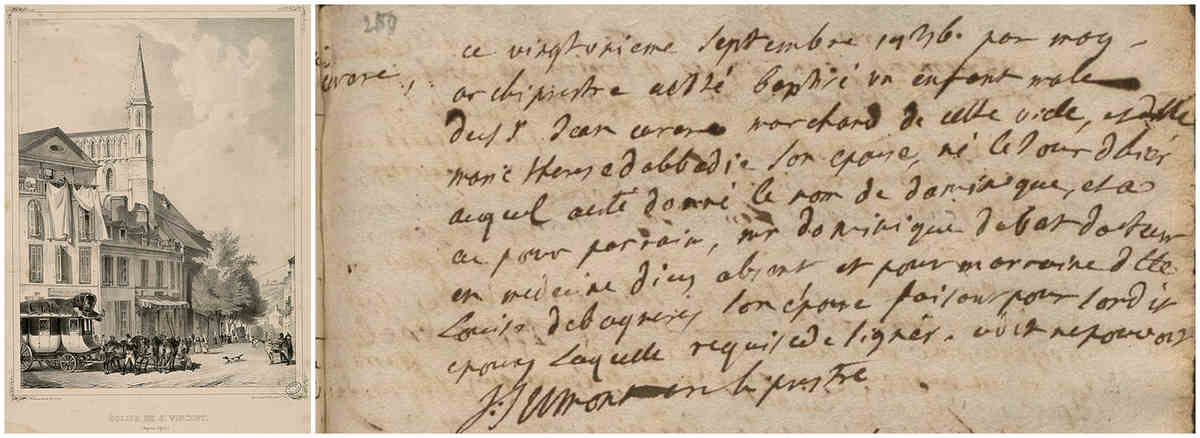 EGLISE DE St. VINCENT.
280
ce vingtunieme septembre 1736. par moy -
archiprestre a esté baptisé un enfant male
du sr Jean marchand de cette ville, et
marie therese dabbadie son epouse, né le jour dhier
auquel a esté donné le nom de dominique, et a
eu pour parrain, mr dominique debat docteur
en medecine absent et pour marraine dlle
Louise debagneris son épouse faisant pour sondit
epoux laquelle requise de signer. a dit ne pouvoir